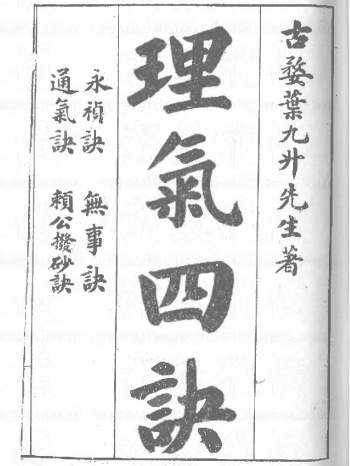 古婺葉九升先生著
理氣四訣
永禎訣 無事訣
通氣訣 賴公撥砂訣